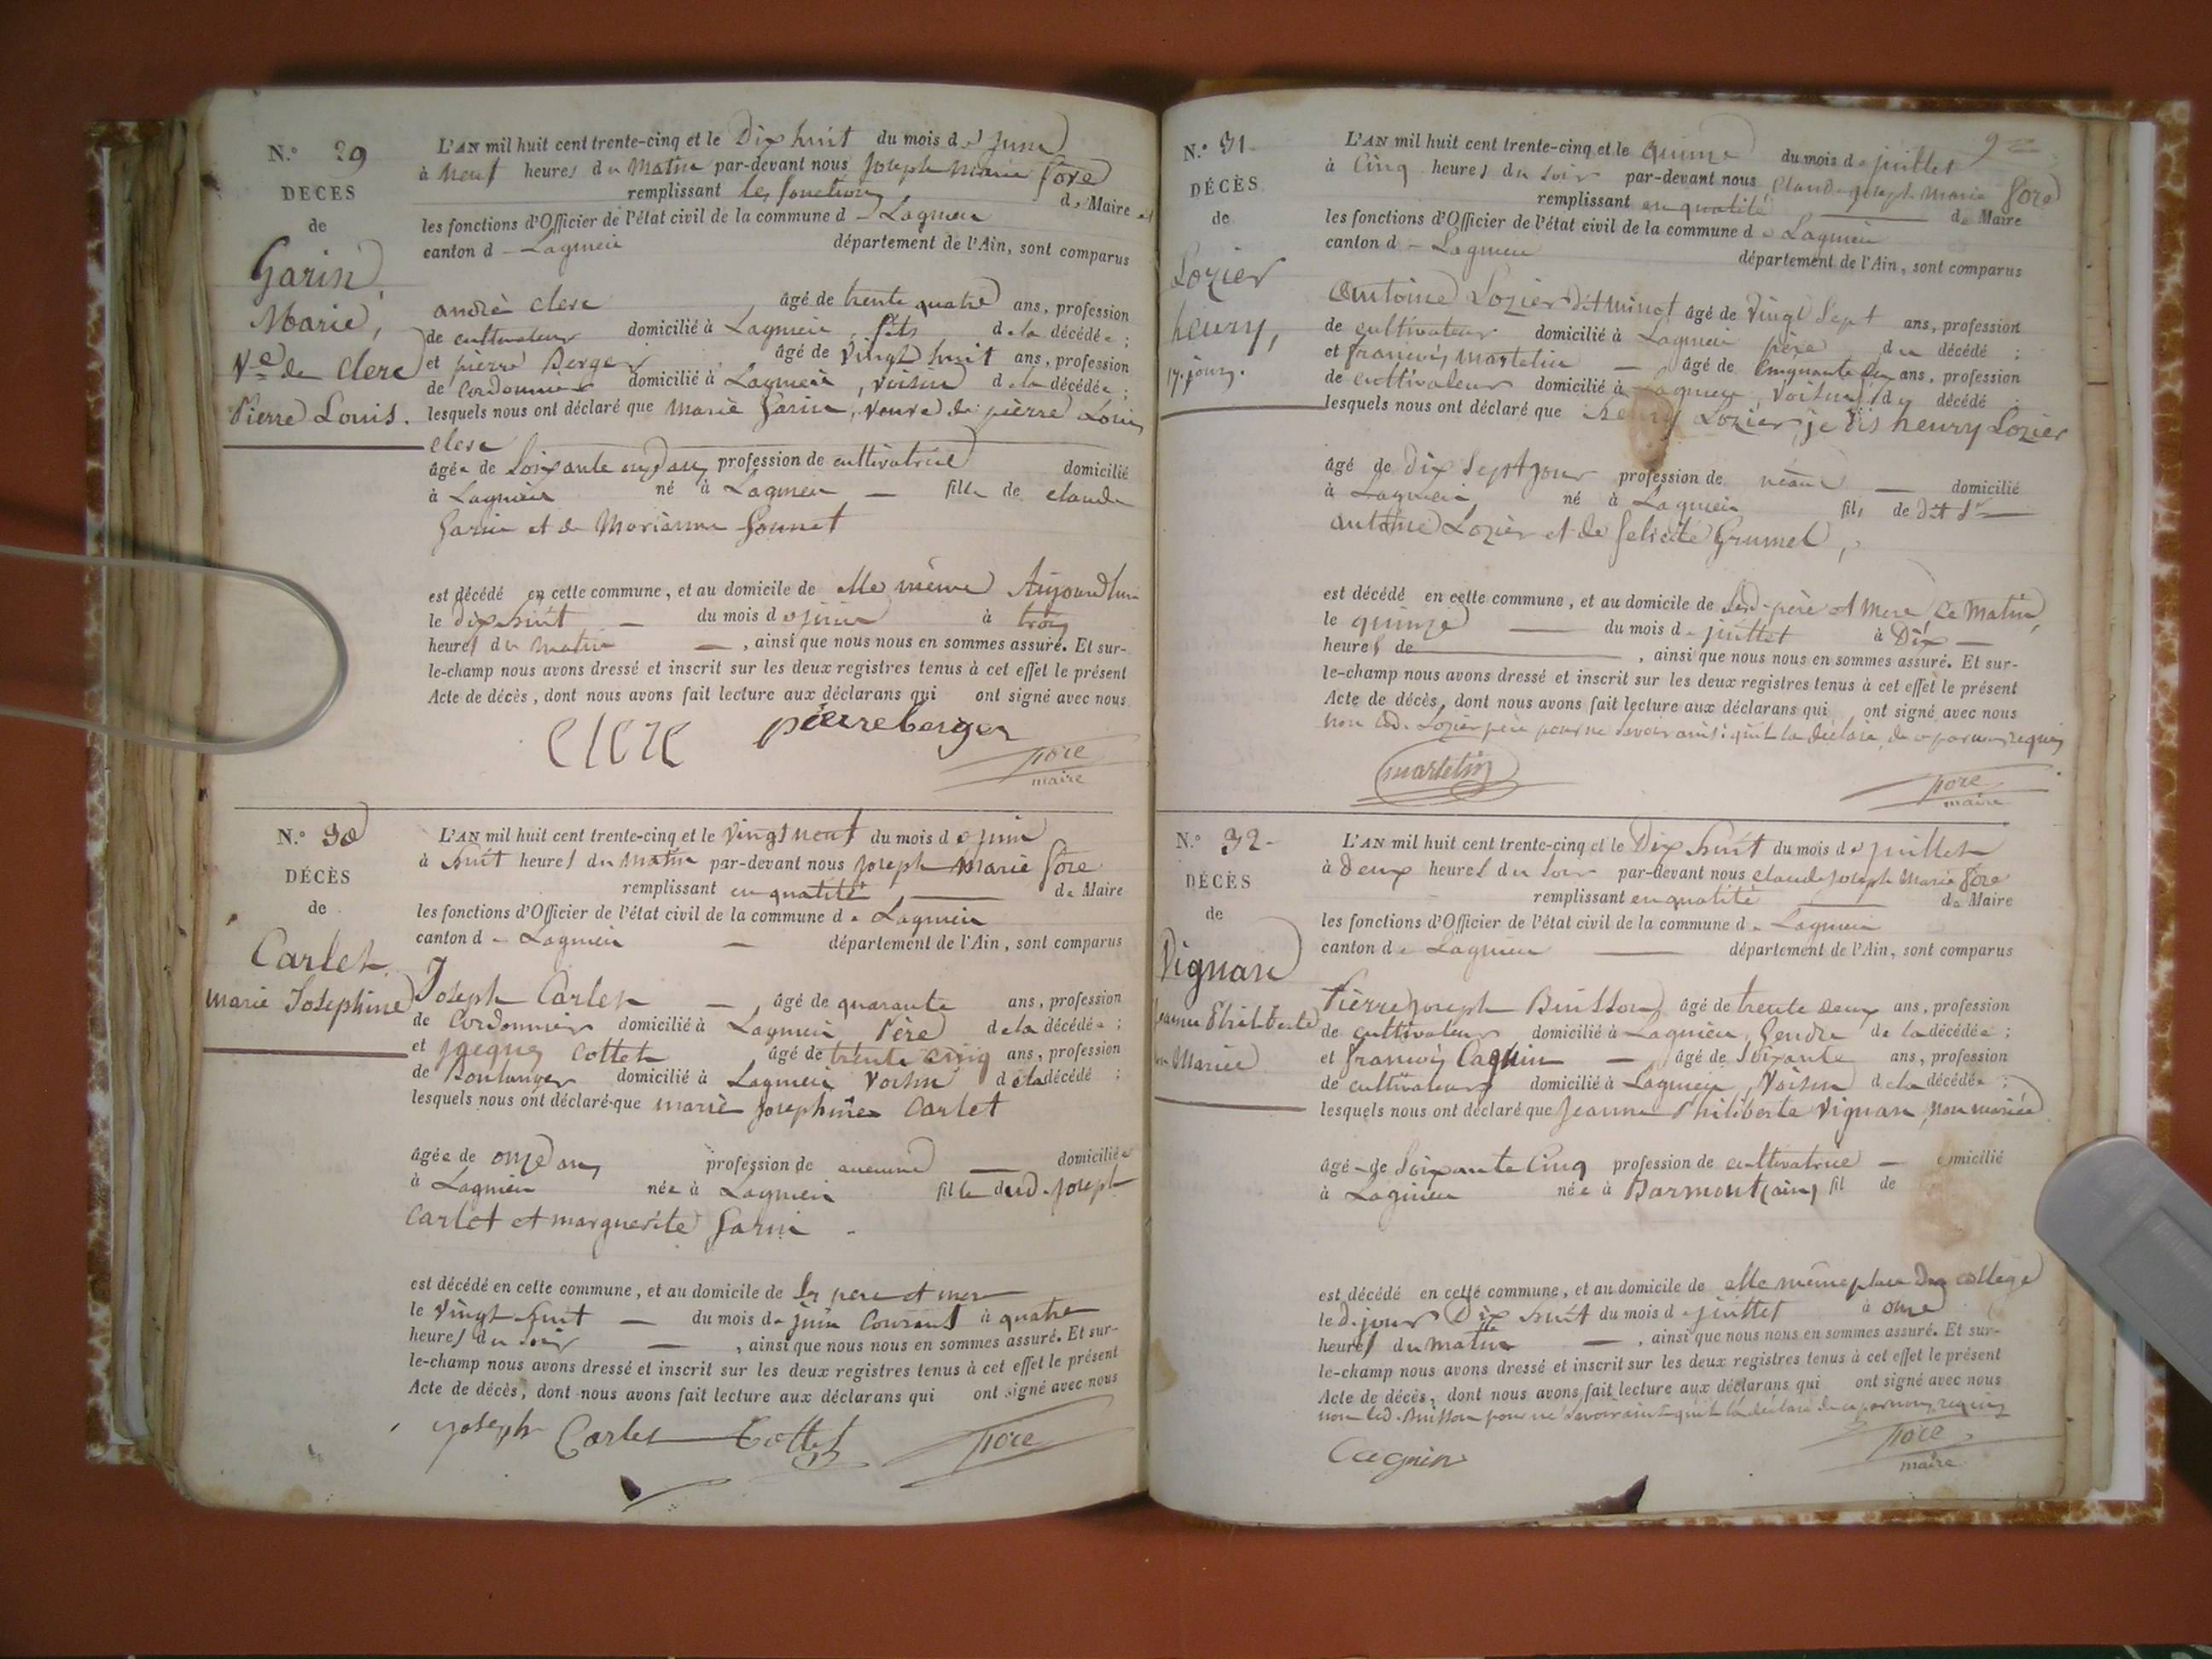 N.° 29
DÉCÈS
de
Garin
Marie,
V.e de Clerc
Pierre Louis.
L'AN mil huit cent trente-cinq et le Dix huit du mois de Juin
à neuf heures du matin par-devant nous Joseph Marie Fore
remplissant les fonctions de Maire et
les fonctions d'Officier de l'état civil de la commune d Lagnieu
canton d Lagnieu département de l'Ain, sont comparus
andrè clerc âgé de trente quatre ans, profession
de cultivateur domicilié à Lagnieu, fils de la décédée ;
et pierre Berger âgé de Vingt huit ans, profession
de Cordonnier domicilié à Lagnieu, voisin de la décédée ;
lesquels nous ont déclaré que Marie Garin, veuve de pierre Louis
clerc
âgée de Soixante ans, profession de cultivatrice domicilié
à Lagnieu né à Lagnieu — fille de claude
Garin et de Marianne Gonnet
est décédé en cette commune, et au domicile de elle même Aujourd'hui
le dix huit — du mois de juin à trois
heures du matin —, ainsi que nous nous en sommes assuré. Et sur-
le-champ nous avons dressé et inscrit sur les deux registres tenus à cet effet le présent
Acte de décès, dont nous avons fait lecture aux déclarans qui ont signé avec nous
Clerc pierre berger
Fore
maire
N.° 30
DÉCÈS
de
Carlet
marie Josephine
L'AN mil huit cent trente-cinq et le Vingt neuf du mois de juin
à huit heures du matin par-devant nous Joseph Marie Fore
remplissant en qualité — de Maire
les fonctions d'Officier de l'état civil de la commune de Lagnieu
canton de Lagnieu — département de l'Ain, sont comparus
Joseph Carlet — âgé de quarante ans, profession
de Cordonnier domicilié à Lagnieu Père de la décédée ;
et jacques Cottet âgé de trente cinq ans, profession
de Boulanger domicilié à Lagnieu Voisin de la décédé ;
lesquels nous ont déclaré que marie josephine Carlet
âgée de onze ans profession de aucune — domiciliée
à Lagnieu née à Lagnieu fille dud. joseph
Carlet et marguerite Garin
est décédé en cette commune, et au domicile de ses pere et mere
le Vingt huit — du mois de juin Courant à quatre
heures du soir —, ainsi que nous nous en sommes assuré. Et sur-
le-champ nous avons dressé et inscrit sur les deux registres tenus à cet effet le présent
Acte de décès, dont nous avons fait lecture aux déclarans qui ont signé avec nous
joseph Carlet Cottet Fore
N.° 31
DÉCÈS
de
Lozier
henry,
17. jours.
L'AN mil huit cent trente-cinq et le quinze du mois de juillet
à Cinq heures du soir par-devant nous Claude joseph Marie Fore
remplissant en qualité — de Maire
les fonctions d'Officier de l'état civil de la commune de Lagnieu
canton d Lagnieu département de l'Ain, sont comparus
Antoine Lozier dit mingt âgé de Vingt Sept ans, profession
de cultivateur domicilié à Lagnieu père du décédé ;
et francois martelin — âgé de Cinquante ans, profession
de cultivateur domicilié à Lagnieu, Voisin du décédé
lesquels nous ont déclaré que henry Lozier, je dis henry Lozier
âgé de Dix Sept jour profession de néant — domicilié
à Lagnieu né à Lagnieu fils de dit Sr —
antoine Lozier et de felicité Grumel,
est décédé en cette commune, et au domicile de Sesd. père et Mere, Ce Matin,
le quinze — du mois de juillet à Dix —
heures de —, ainsi que nous nous en sommes assuré. Et sur-
le-champ nous avons dressé et inscrit sur les deux registres tenus à cet effet le présent
Acte de décès, dont nous avons fait lecture aux déclarans qui ont signé avec nous
non led. Lozier père pour ne savoir ainsi qu'il l'a déclaré de ce par nous requis
martelin
Fore
maire
N.° 32
DÉCÈS
de
Vignan
jeanne Philiberte
non Mariée
L'AN mil huit cent trente-cinq et le Dix huit du mois de juillet
à Deux heures du Soir par-devant nous claude joseph Marie Fore
remplissant en qualité — de Maire
les fonctions d'Officier de l'état civil de la commune de Lagnieu
canton de Lagnieu — département de l'Ain, sont comparus
Pierre joseph Buisson âgé de trente deux ans, profession
de cultivateur domicilié à Lagnieu, Gendre de la décédée ;
et francois Cagnin — âgé de Soixante ans, profession
de cultivateur domicilié à Lagnieu, Voisin de la décédée ;
lesquels nous ont déclaré que Jeanne Philiberte Vignan, non mariée
âgé de Soixante Cinq profession de cultivatrice — domicilié
à Lagnieu née à Darmont (ain) fil de
est décédé en cette commune, et au domicile de elle même place du college
le d. jour Dix huit du mois de juillet à onze
heures du matin —, ainsi que nous nous en sommes assuré. Et sur-
le-champ nous avons dressé et inscrit sur les deux registres tenus à cet effet le présent
Acte de décès, dont nous avons fait lecture aux déclarans qui ont signé avec nous
non led. Buisson pour ne savoir ainsi qu'il l'a déclaré de ce par nous requis
Cagnin
Fore
maire